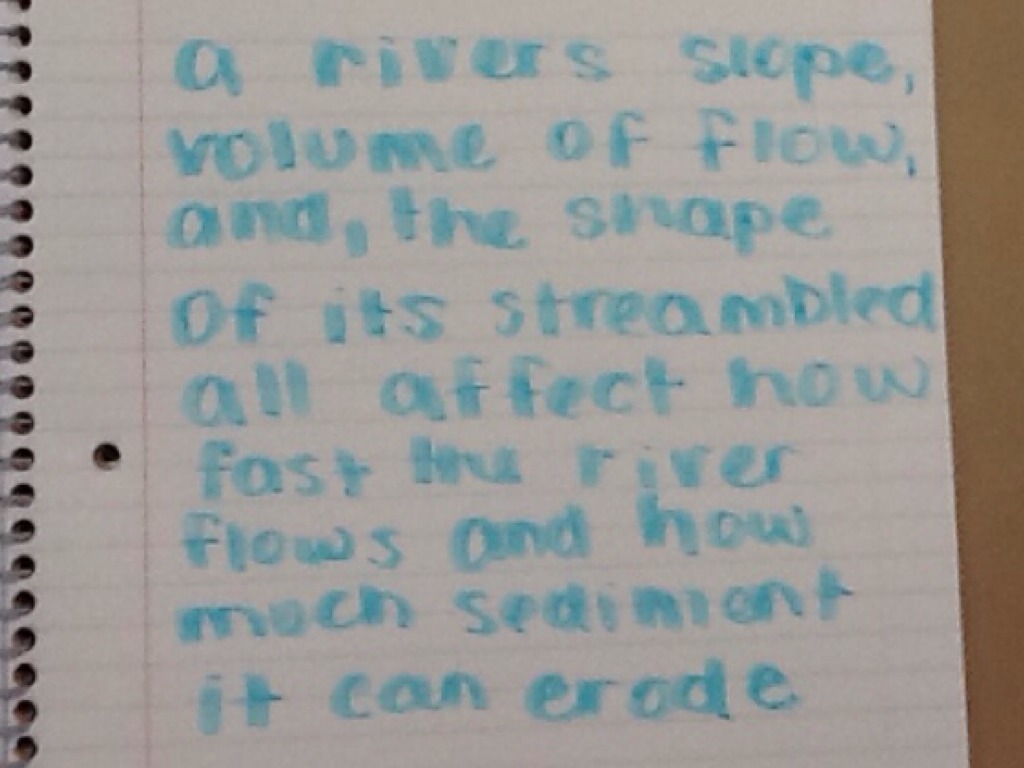 a rivers slope,
volume of flow,
and, the shape
of its streambled
all affect how
fast the river
flows and how
much sediment
it can erode